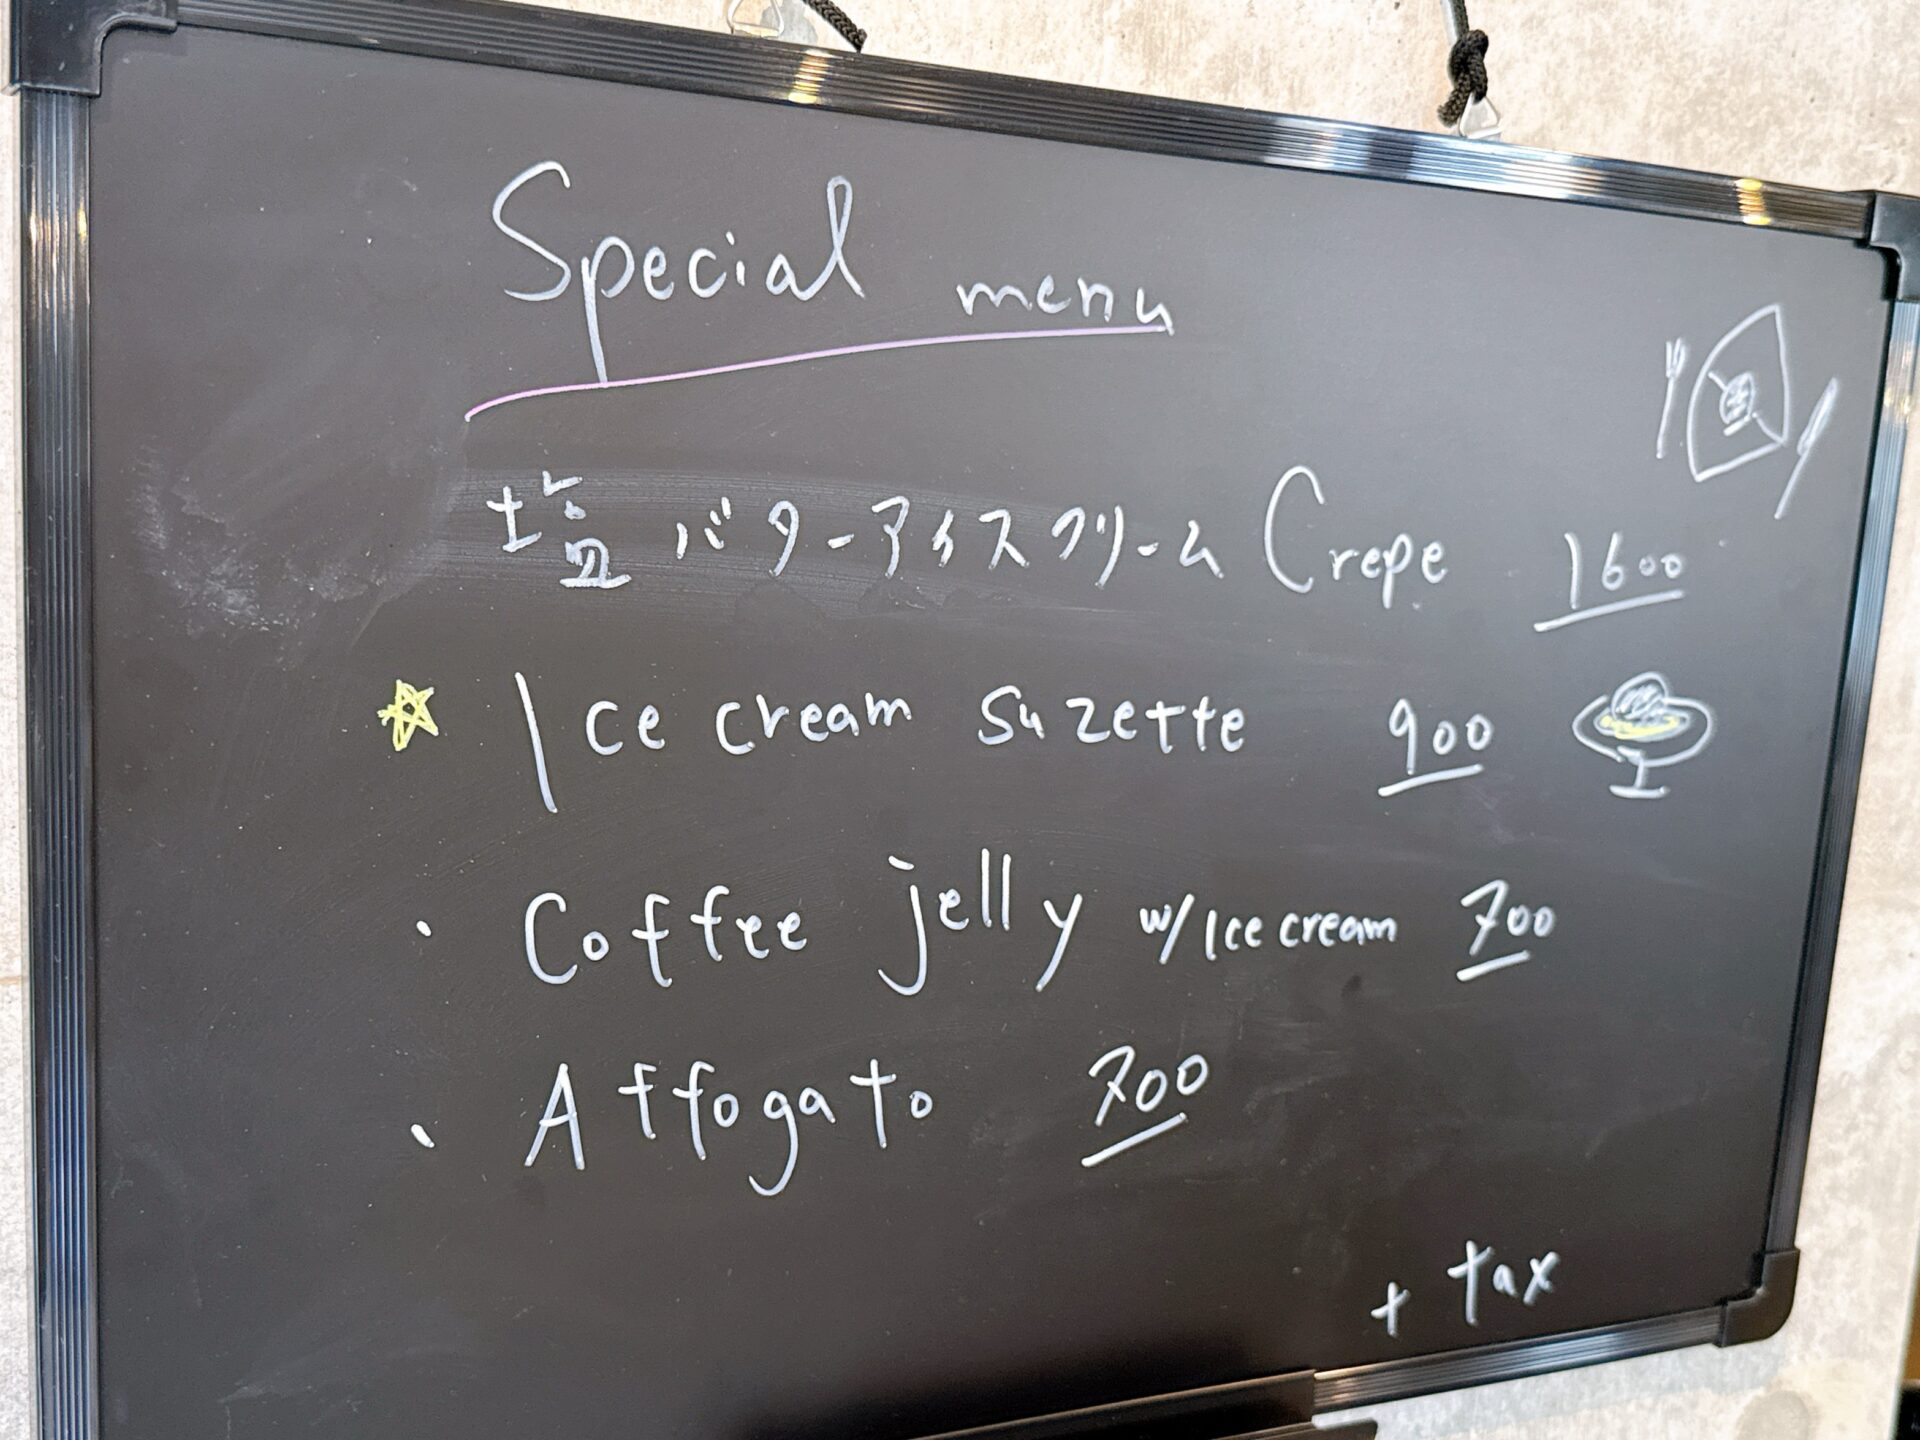 Special menu
塩バターアイスクリーム Crepe 1600
Ice cream suzette 900
・ Coffee jelly w/Ice cream 700
・ Affogato 700
+ tax